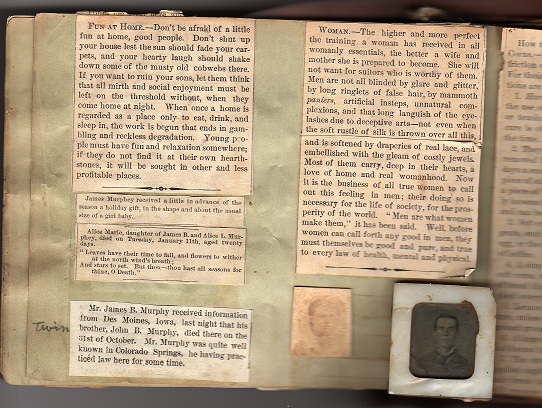 FUN AT HOME.—Don't be afraid of a little
fun at home, good people. Don't shut up
your house lest the sun should fade your car-
pets, and your hearty laugh should shake
down some of the musty old cobwebs there.
If you want to ruin your sons, let them think
that all mirth and social enjoyment must be
left on the threshold without, when they
come home at night. When once a home is
regarded as a place only to eat, drink, and
sleep in, the work is begun that ends in gam-
bling and reckless degradation. Young peo-
ple must have fun and relaxation somewhere;
if they do not find it at their own hearth-
stones, it will be sought in other and less
profitable places.
James Murphey received a little in advance of the
season a holiday gift, in the shape and about the usual
size of a girl baby.
Alice Marie, daughter of James B. and Alice L. Mur-
phey, died on Tuesday, January 11th, aged twenty
days.
"Leaves have their time to fall, and flowers to wither
at the north wind's breath;
And stars to set. But thou—thou hast all seasons for
thine, O Death."
Twin
Mr. James B. Murphy received information
from Des Moines, Iowa, last night that his
brother, John B. Murphy, died there on the
31st of October. Mr. Murphy was quite well
known in Colorado Springs, he having prac-
ticed law here for some time.
WOMAN.—The higher and more perfect
the training a woman has received in all
womanly essentials, the better a wife and
mother she is prepared to become. She will
not want for suitors who is worthy of them.
Men are not all blinded by glare and glitter,
by long ringlets of false hair, by mammoth
paniers, artificial insteps, unnatural com-
plexions, and that long languish of the eye-
lashes due to deceptive arts—not even when
the soft rustle of silk is thrown over all this,
and is softened by draperies of real lace, and
embellished with the gleam of costly jewels.
Most of them carry, deep in their hearts, a
love of home and real womanhood. Now
it is the business of all true women to call
out this feeling in men; their doing so is
necessary for the life of society, for the pros-
perity of the world. "Men are what women
make them," it has been said. Well, before
women can call forth any good in men, they
must themselves be good and pure, and true
to every law of health, mental and physical.